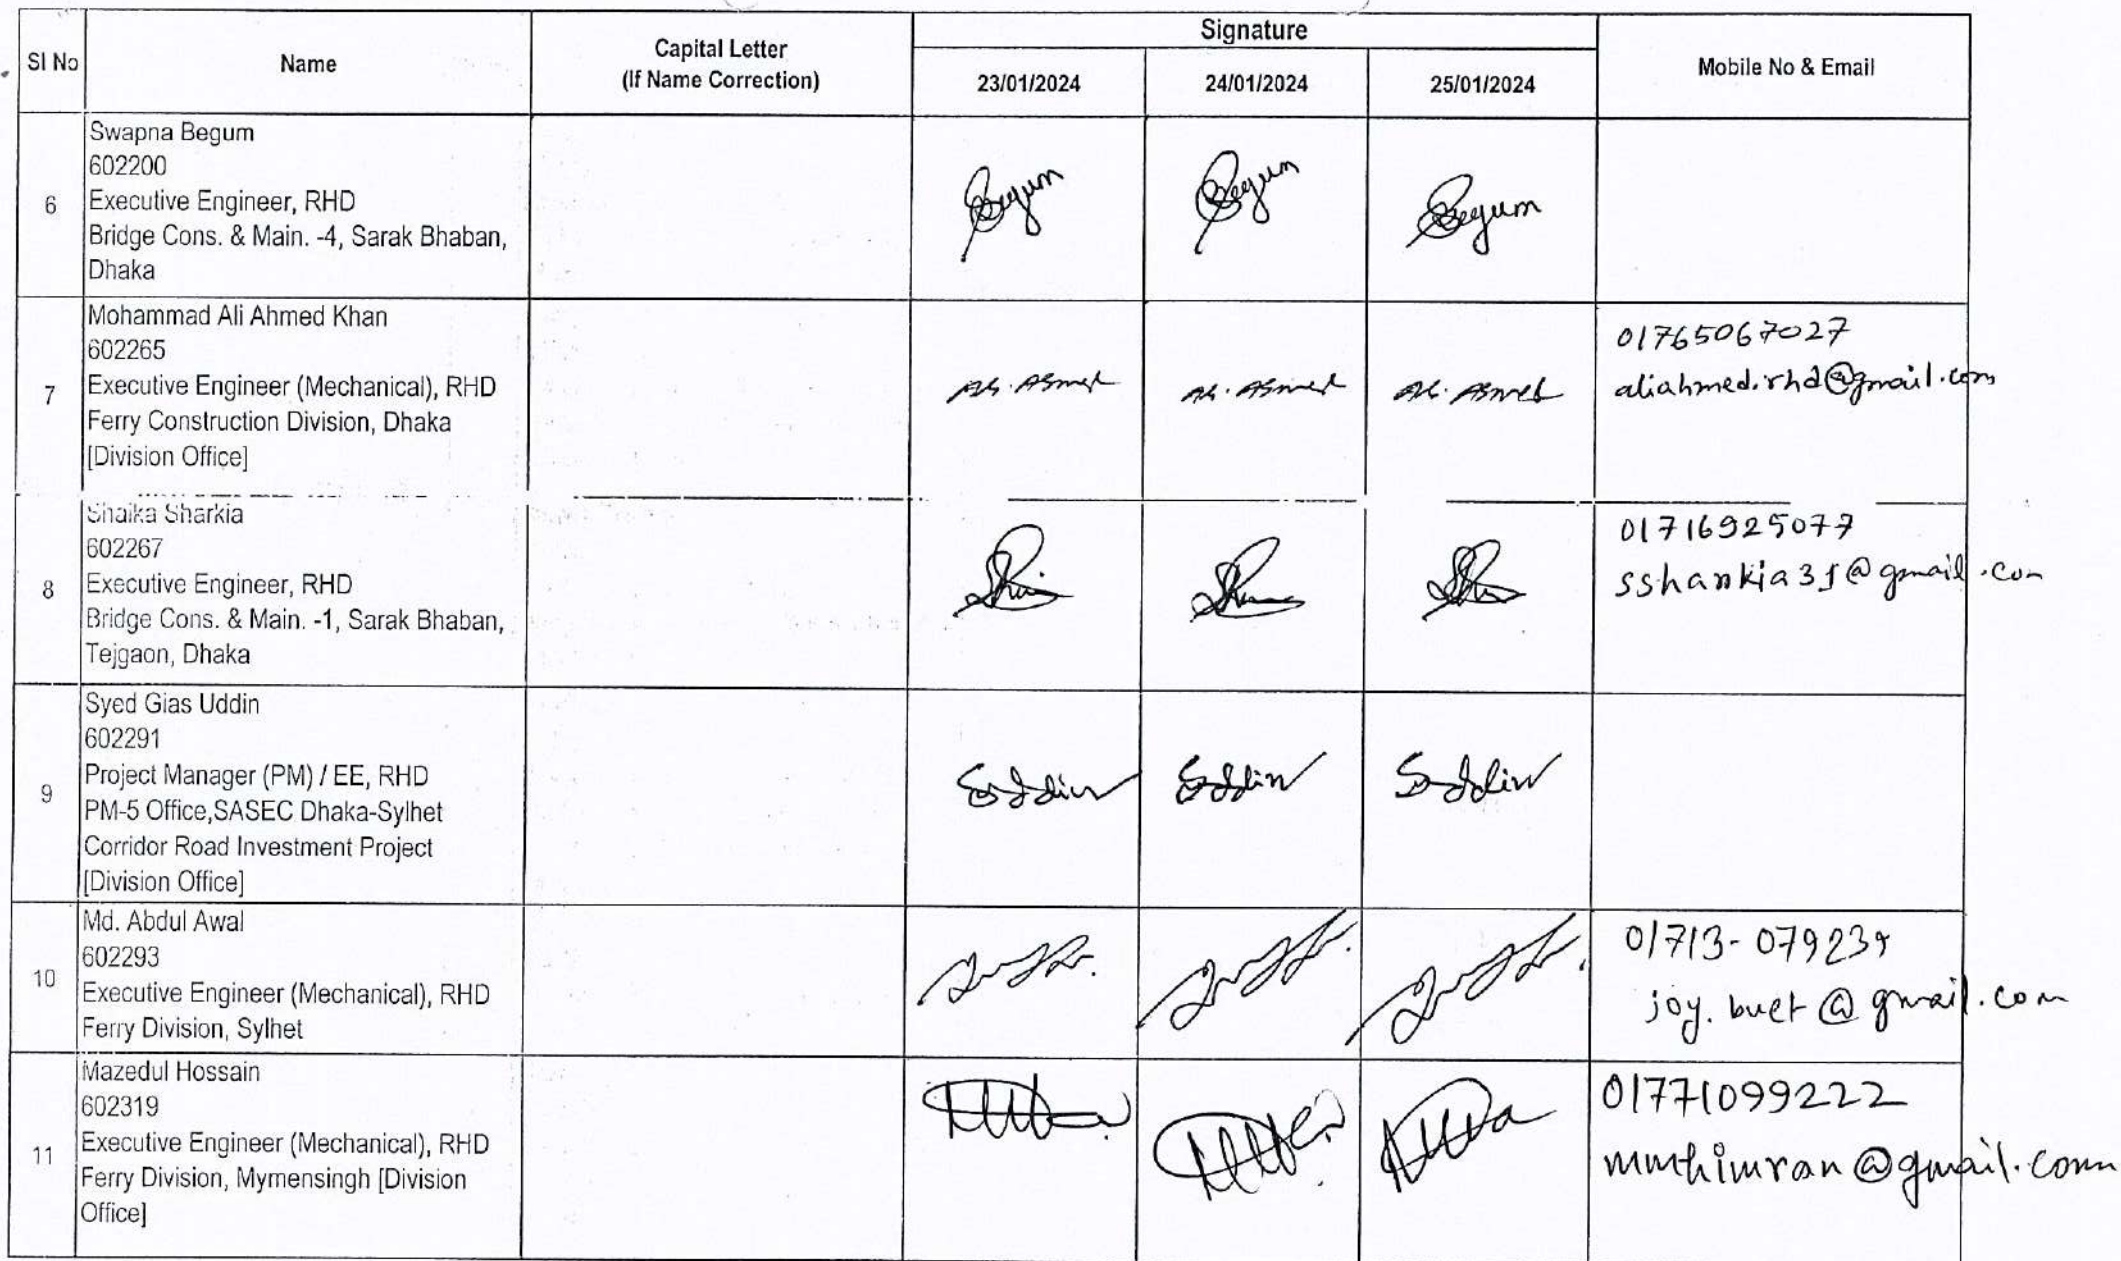 Sl No
Name
Capital Letter
(If Name Correction)
Signature
23/01/2024
24/01/2024
25/01/2024
Mobile No & Email
6
Swapna Begum
602200
Executive Engineer, RHD
Bridge Cons. & Main. -4, Sarak Bhaban,
Dhaka
Begum
Begum
Begum
7
Mohammad Ali Ahmed Khan
602265
Executive Engineer (Mechanical), RHD
Ferry Construction Division, Dhaka
[Division Office]
01765067027
aliahmed.rhd@gmail.com
8
Shaika Sharkia
602267
Executive Engineer, RHD
Bridge Cons. & Main. -1, Sarak Bhaban,
Tejgaon, Dhaka
01716925077
@gmail.com
9
Syed Gias Uddin
602291
Project Manager (PM) / EE, RHD
PM-5 Office,SASEC Dhaka-Sylhet
Corridor Road Investment Project
[Division Office]
10
Md. Abdul Awal
602293
Executive Engineer (Mechanical), RHD
Ferry Division, Sylhet
joy.buet@gmail.com
11
Mazedul Hossain
602319
Executive Engineer (Mechanical), RHD
Ferry Division, Mymensingh [Division
Office]
01771099222
mmhimran@gmail.com